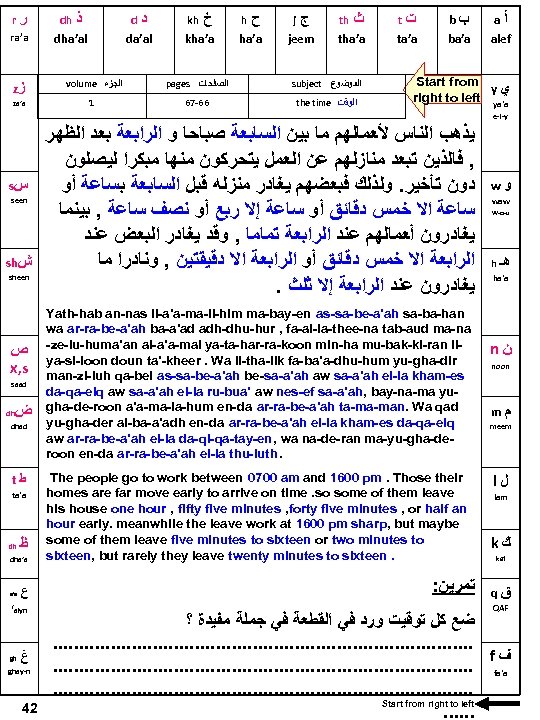 أ a ب b ت t ث th ج J ح h خ kh د d ذ dh ر r
alef ba’a ta’a tha’a jeem ha’a kha’a da’al dha’al ra’a
Start from right to left
الموضوع subject الصفحات pages الجزء volume
الوقت the time 67-66 1
ي y
ya’a
e-i-y
و w
waw
w-o-u
هـ h
ha’a
ن n
noon
م m
meem
ل l
lam
ك k
kaf
ق q
QAF
ف f
fa’a
ز z
za’a
س s
seen
ش sh
sheen
ص
X, s
saad
ض dh
dhad
ط t
ta’a
ظ dh
dha’a
ع
‘aiyn
غ gh
ghay-n
يذهب الناس لأعمالهم ما بين السابعة صباحا و الرابعة بعد الظهر
, فالذين تبعد منازلهم عن العمل يتحركون منها مبكرا ليصلون
دون تأخير. ولذلك فبعضهم يغادر منزله قبل السابعة بساعة أو
ساعة الا خمس دقائق أو ساعة إلا ربع أو نصف ساعة , بينما
يغادرون أعمالهم عند الرابعة تماما , وقد يغادر البعض عند
الرابعة الا خمس دقائق أو الرابعة الا دقيقتين , ونادرا ما
يغادرون عند الرابعة إلا ثلث .
Yath-hab an-nas li-a'a-ma-li-him ma-bay-en as-sa-be-a'ah sa-ba-han
wa ar-ra-be-a'ah ba-a'ad adh-dhu-hur , fa-al-la-thee-na tab-aud ma-na
-ze-lu-huma'an al-a'a-mal ya-ta-har-ra-koon min-ha mu-bak-ki-ran li-
ya-si-loon doun ta'-kheer . Wa li-tha-lik fa-ba'a-dhu-hum yu-gha-dir
man-zi-luh qa-bel as-sa-be-a'ah be-sa-a'ah aw sa-a'ah el-la kham-es
da-qa-eiq aw sa-a'ah el-la ru-bua' aw nes-ef sa-a'ah, bay-na-ma yu-
gha-de-roon a'a-ma-la-hum en-da ar-ra-be-a'ah ta-ma-man. Wa qad
yu-gha-der al-ba-a'adh en-da ar-ra-be-a'ah el-la kham-es da-qa-eiq
aw ar-ra-be-a'ah el-la da-qi-qa-tay-en, wa na-de-ran ma-yu-gha-de-
roon en-da ar-ra-be-a'ah el-la thu-luth.
The people go to work between 0700 am and 1600 pm . Those their
homes are far move early to arrive on time .so some of them leave
his house one hour , fifty five minutes ,forty five minutes , or half an
hour early. meanwhile the leave work at 1600 pm sharp, but maybe
some of them leave five minutes to sixteen or two minutes to
sixteen, but rarely they leave twenty minutes to sixteen .
تمرين:
ضع كل توقيت ورد في القطعة في جملة مفيدة ؟
Start from right to left
42